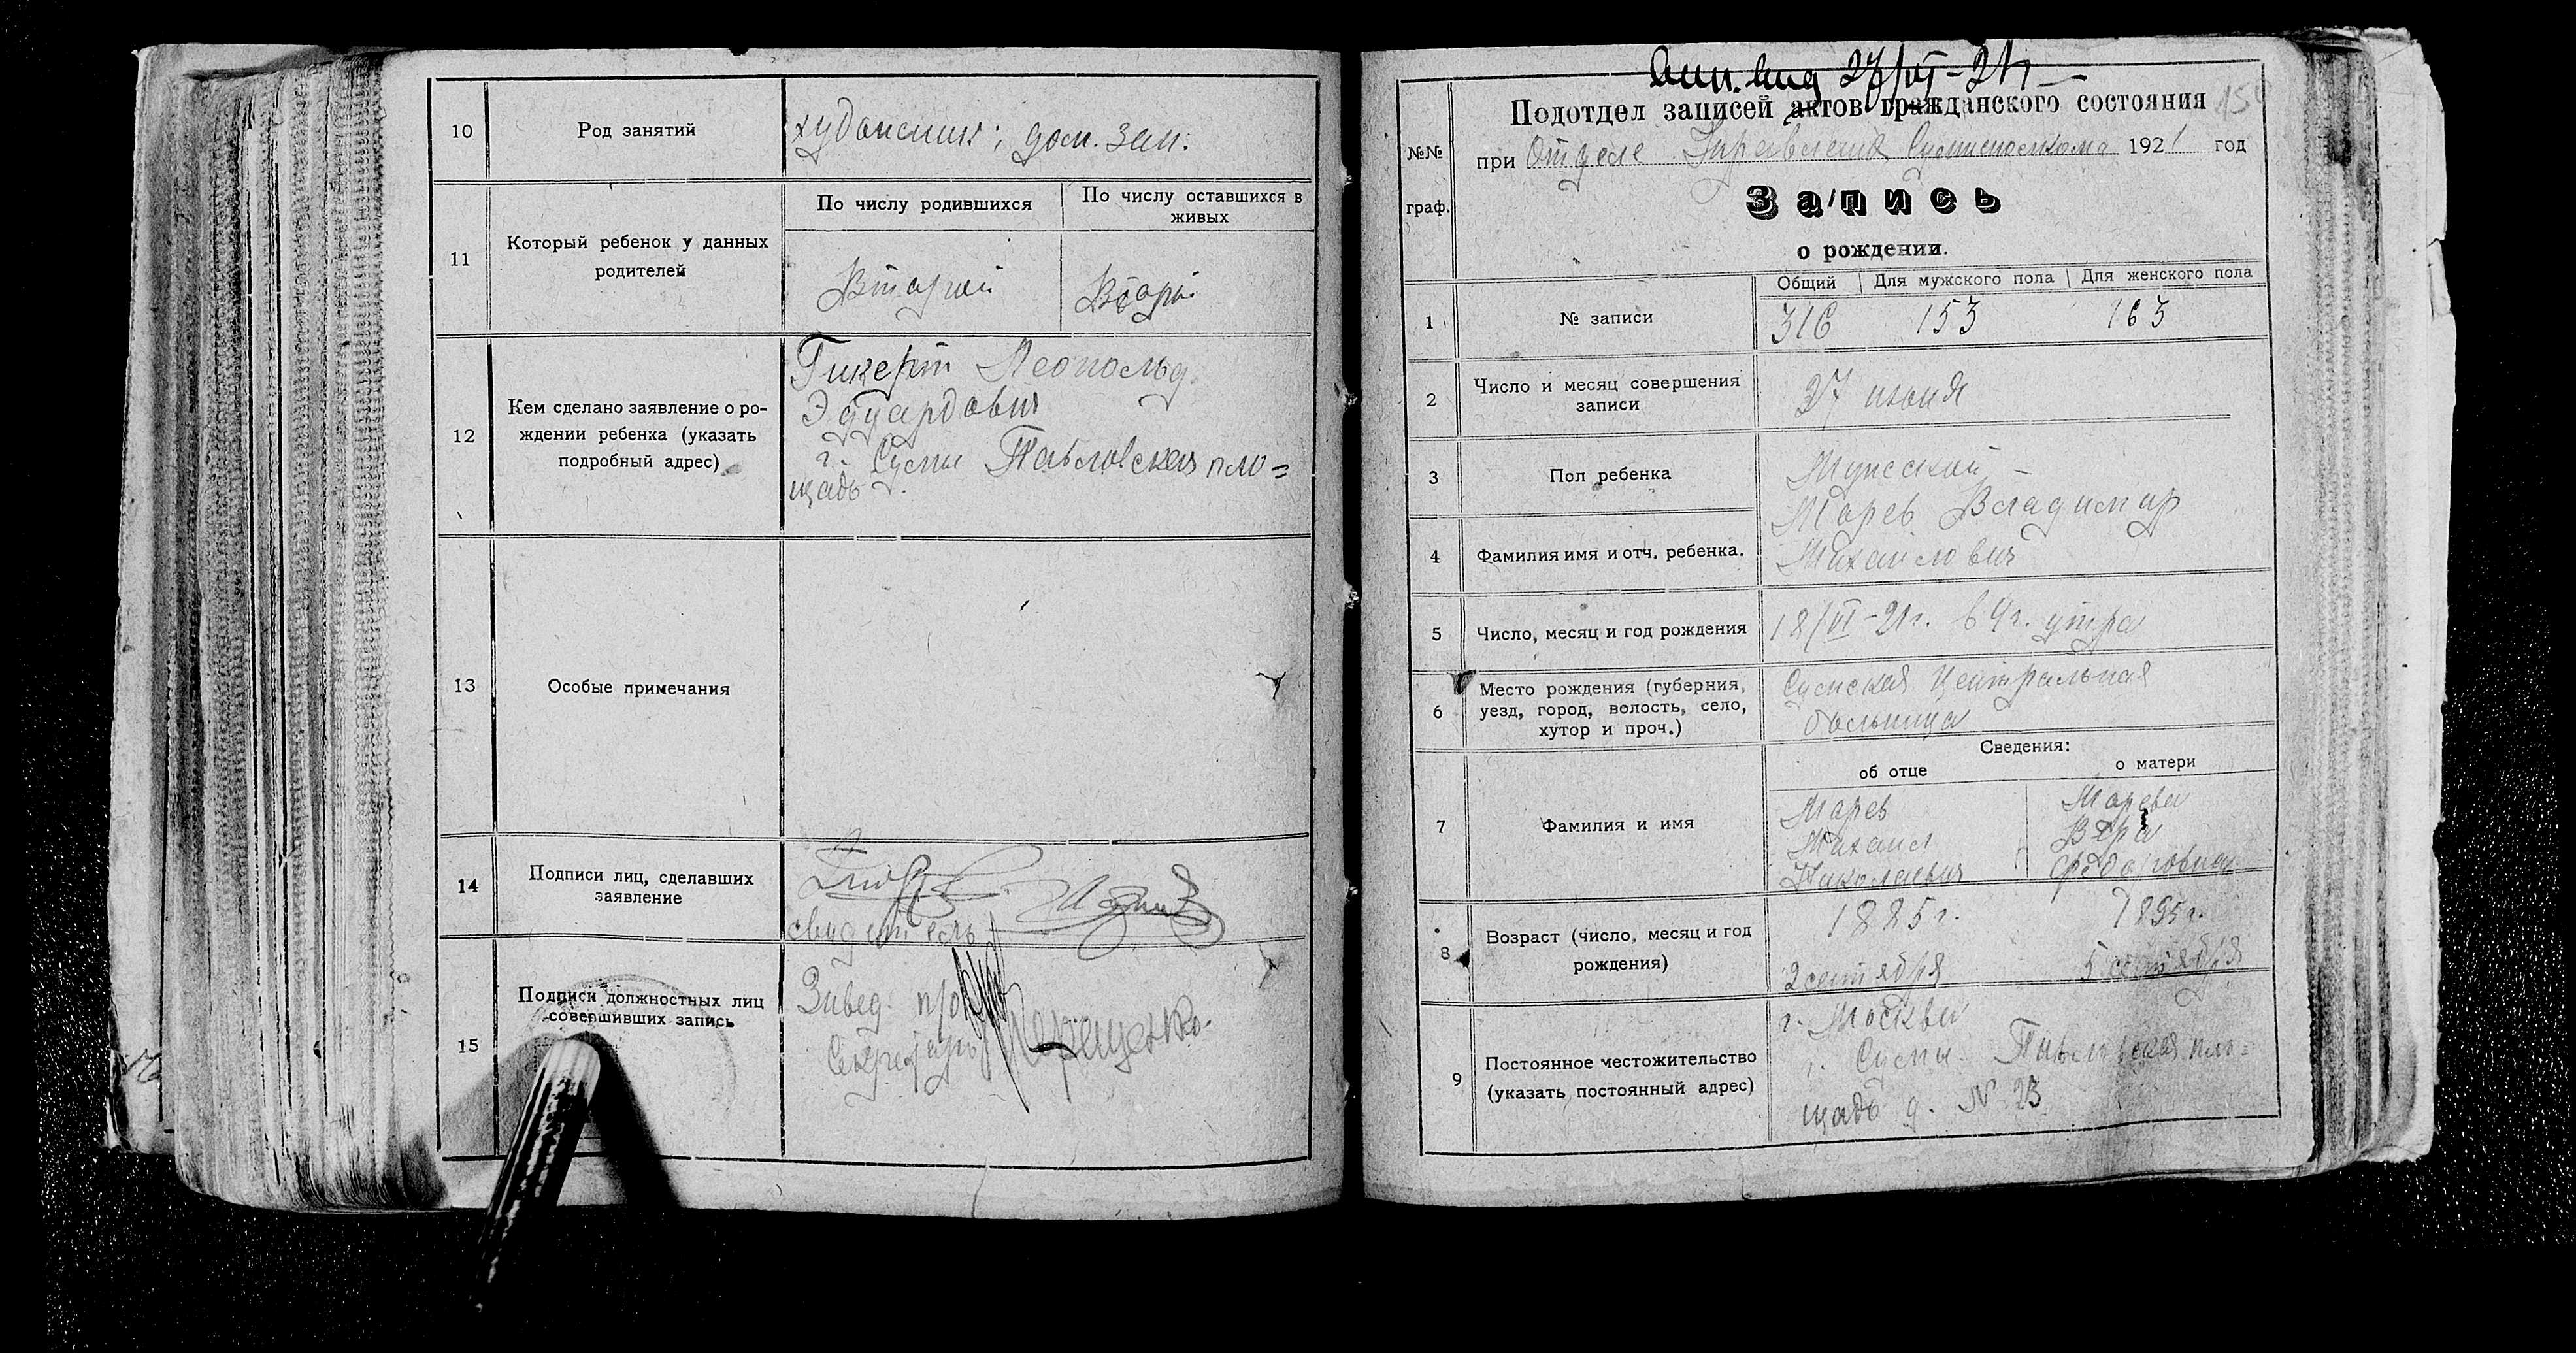 10
Род занятий
художник; дом. зан.
11
Который ребенок у данных
родителей
По числу родившихся
По числу оставшихся в
живых
Второй
Второй
12
Кем сделано заявление о ро-
ждении ребенка (указать
подробный адрес)
Гикерт Леопольд
Эдуардович
г. Сумы Павловская пло=
щадь
13
Особые примечания
14
Подписи лиц, сделавших
заявление
свидетель
15
Подписи должностных лиц
совершивших запись
Завед.
Секретарь
27/VI-21г
Подотдел записей актов гражданского состояния
№№
граф.
при Отделе Управления 1921 год
Запись
о рождении.
1
№ записи
Общий
Для мужского пола
Для женского пола
316
153
163
2
Число и месяц совершения
записи
27 июня
3
Пол ребенка
Мужской
4
Фамилия имя и отч. ребенка.
Марев Владимир
Михайлович
5
Число, месяц и год рождения
18/VI-21г. в 4ч. утра
6
Место рождения (губерния,
уезд, город, волость, село,
хутор и проч.)
Сумская Центральная
больница
Сведения:
об отце
о матери
7
Фамилия и имя
Марев
Михаил
Николаевич
Марева
Вера
8
Возраст (число, месяц и год
рождения)
1885г.
2 сентября
1895г.
5 сентября
9
Постоянное местожительство
(указать постоянный адрес)
г. Москва
г. Сумы. Павловская пло=
щадь д. № 23